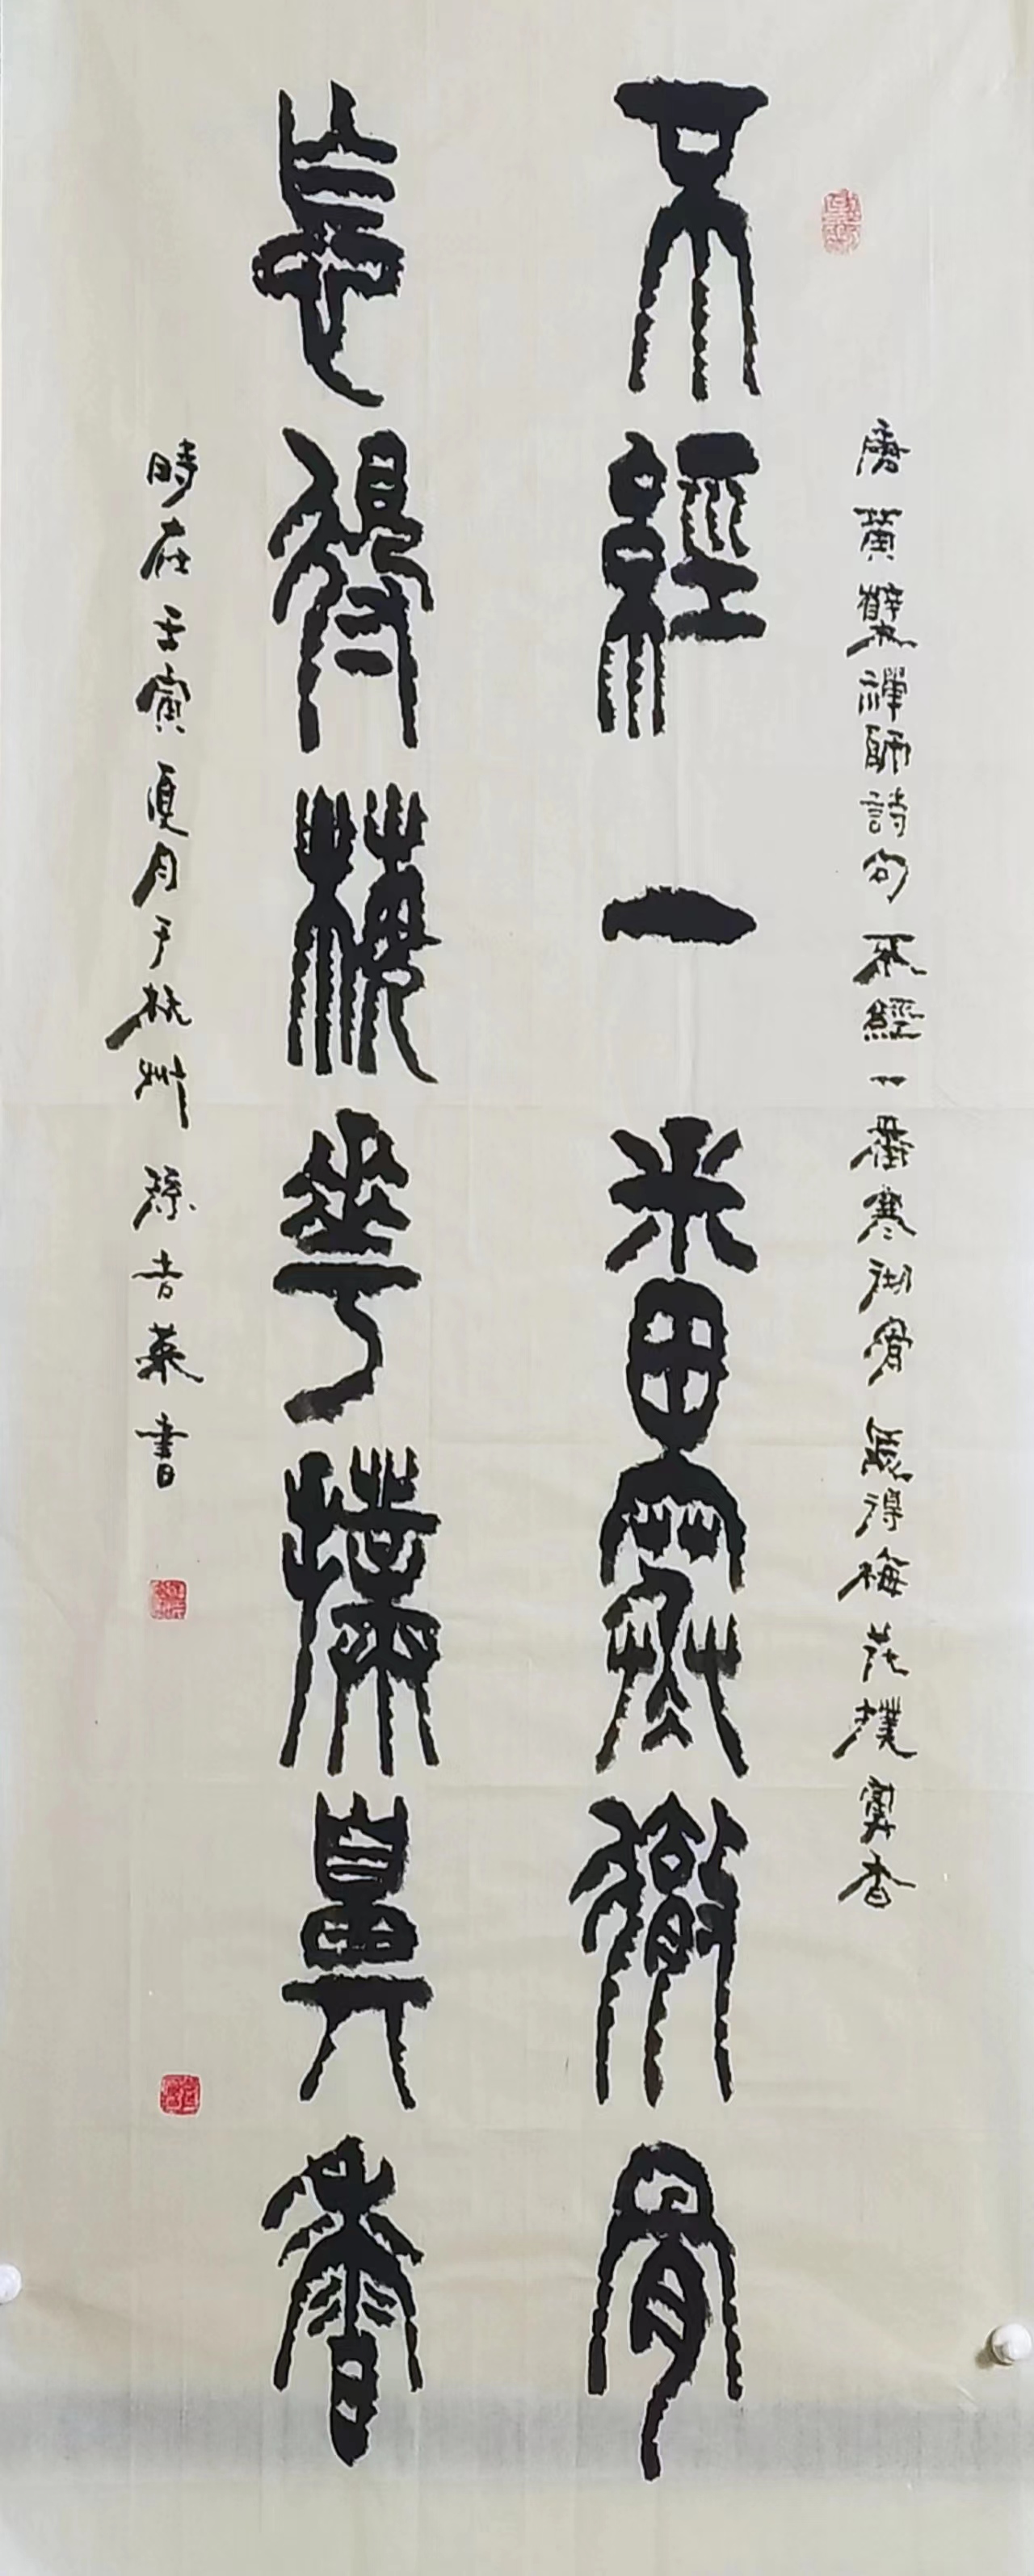 唐黄檗禪師詩句 不經一番寒彻骨 怎得梅花撲鼻香
不經一番寒徹骨
怎得梅華撲鼻香
時在壬寅夏月于杭州 孫吉書